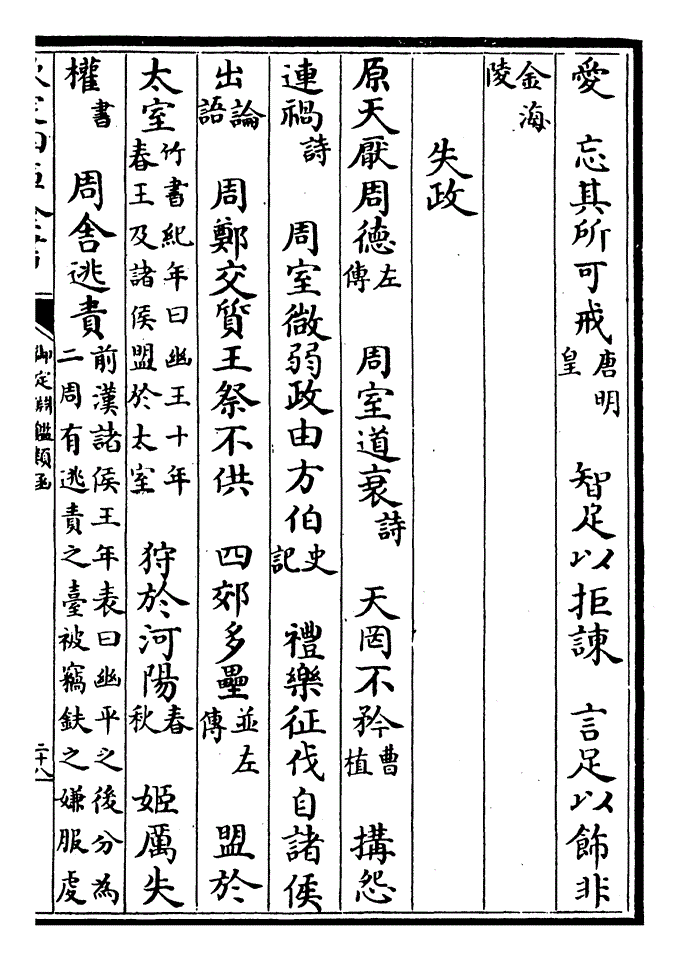 愛　忘其所可戒唐明皇　智足以拒諫　言足以飾非
金海陵
失政
原天厭周德左傳　周室道衰詩　天罔不矜曹植　搆怨
連禍詩　周室微弱政由方伯史記　禮樂征伐自諸侯
出論語　周鄭交質王祭不供　四郊多壘並左傳　盟於
太室竹書紀年曰幽王十年春王及諸侯盟於太室　狩於河陽春秋　姬厲失
權書　周舍逃責前漢諸侯王年表曰幽平之後分為二周有逃責之臺被竊鈇之嫌服虔
御定淵鑑類函
二十八